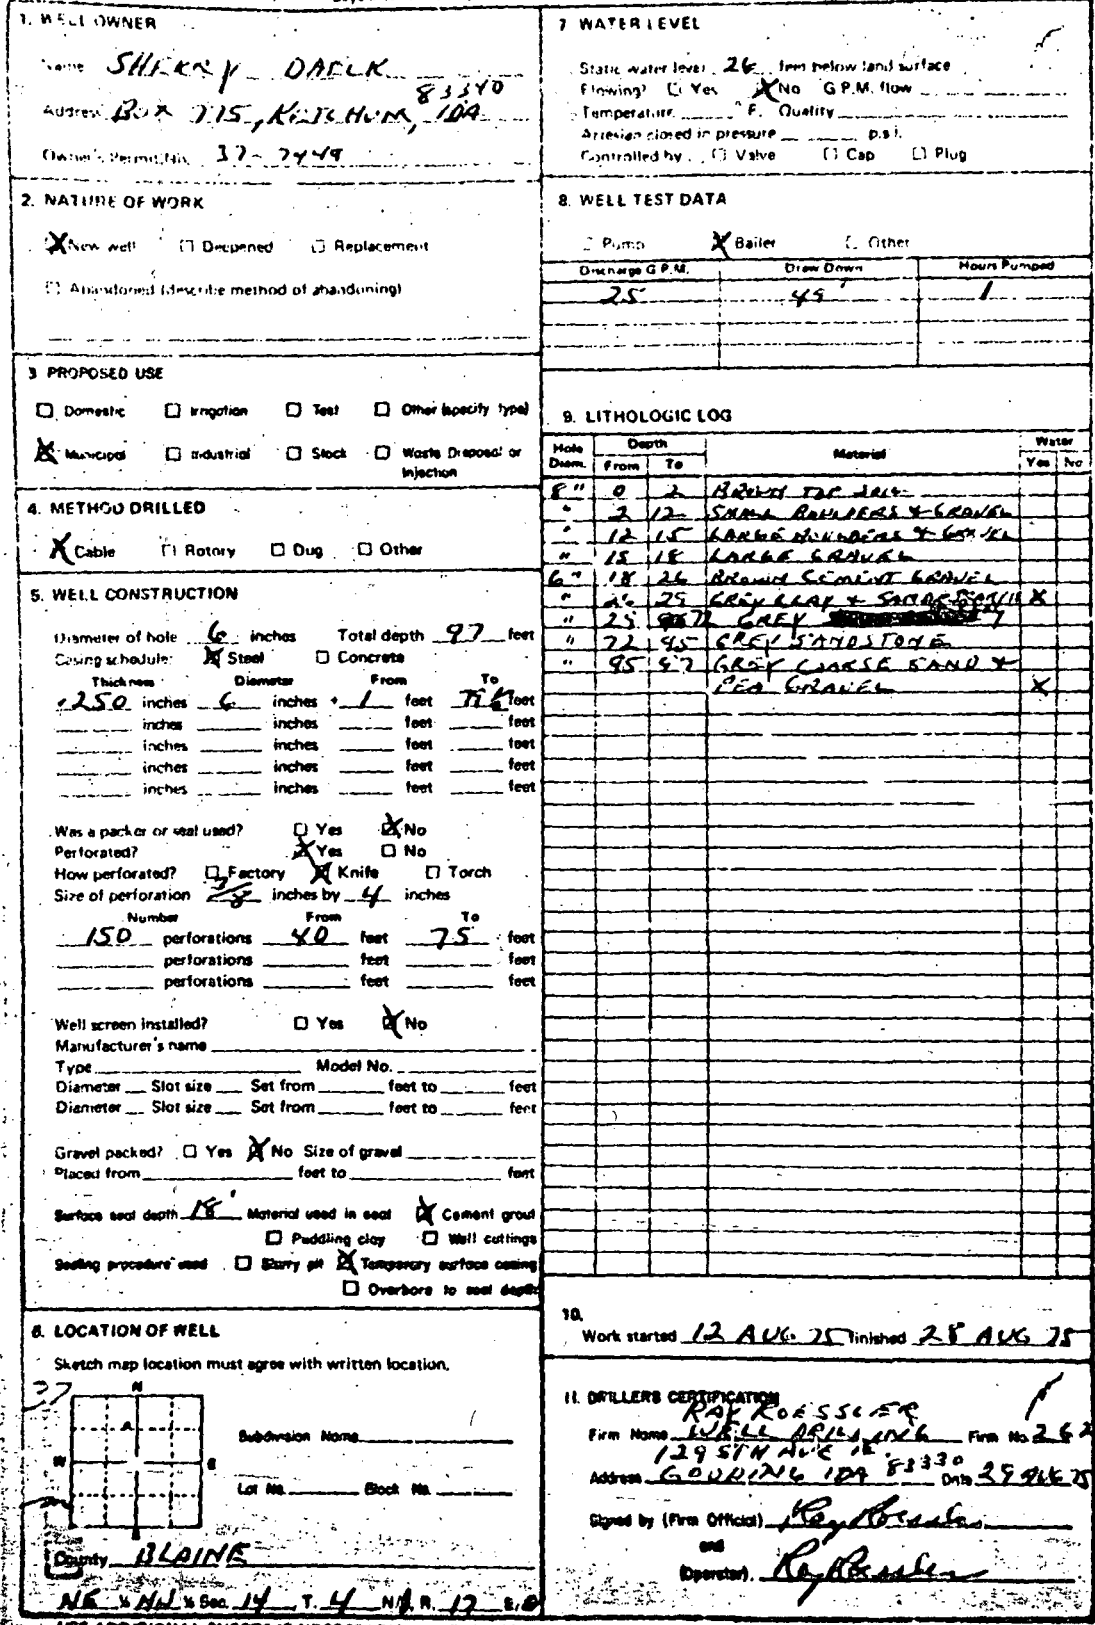 1. WELL OWNER
Name SHERRY DAECK
83340
Address BOX 775, KETCHUM, IDA
Owner's Permit No. 37-7449
2. NATURE OF WORK
X New well □ Deepened □ Replacement
□ Abandoned (describe method of abandoning)
3 PROPOSED USE
□ Domestic □ Irrigation □ Test □ Other (specify type)
X Municipal □ Industrial □ Stock □ Waste Disposal or
Injection
4. METHOD DRILLED
X Cable □ Rotary □ Dug □ Other
5. WELL CONSTRUCTION
Diameter of hole 6 inches Total depth 97 feet
Casing schedule: X Steel □ Concrete
Thickness Diameter From To
.250 inches 6 inches + 1 feet feet
inches inches feet feet
inches inches feet feet
inches inches feet feet
inches inches feet feet
Was a packer or seal used? □ Yes X No
Perforated? X Yes □ No
How perforated? □ Factory X Knife □ Torch
Size of perforation 3/8 inches by 4 inches
Number From To
150 perforations 40 feet 75 feet
perforations feet feet
perforations feet feet
Well screen installed? □ Yes X No
Manufacturer's name
Type Model No.
Diameter Slot size Set from feet to feet
Diameter Slot size Set from feet to feet
Gravel packed? □ Yes X No Size of gravel
Placed from feet to feet
Surface seal depth 18' Material used in seal X Cement grout
□ Puddling clay □ Well cuttings
Sealing procedure used □ Slurry pit X Temporary surface casing
□ Overbore to seal depth
6. LOCATION OF WELL
Sketch map location must agree with written location.
37
N
W E
S
Subdivision Name
Lot No. Block No.
County BLAINE
NE ¼ NW ¼ Sec. 14 T. 4 N/S R. 17 E/W
7 WATER LEVEL
Static water level 26 feet below land surface
Flowing? □ Yes X No G.P.M. flow
Temperature ° F. Quality
Artesian closed in pressure p.s.i.
Controlled by □ Valve □ Cap □ Plug
8. WELL TEST DATA
□ Pump X Bailer □ Other
Discharge G.P.M. Draw Down Hours Pumped
25 45' 1
9. LITHOLOGIC LOG
Hole Depth Material Water
Diam. From To Yes No
8" 0 2 BROWN TOP SOIL
" 2 12 SMALL BOULDERS & GRAVEL
" 12 15 LARGE BOULDERS & GRAVEL
" 15 18 LARGE GRAVEL
6" 18 26 BROWN CEMENT GRAVEL
" 26 29 GREY CLAY & X
" 25 72 GREY
" 72 95 GREY SANDSTONE
" 95 97 GREY COARSE SAND &
PEA GRAVEL X
10.
Work started 12 AUG 75 finished 28 AUG 75
11. DRILLERS CERTIFICATION
RAY ROESSLER
Firm Name WELL DRILLING Firm No. 262
129 5TH AVE E.
Address GOODING IDA 83330 Date 29 AUG 75
Signed by (Firm Official) Ray Roessler
and
(Operator) Ray Roessler